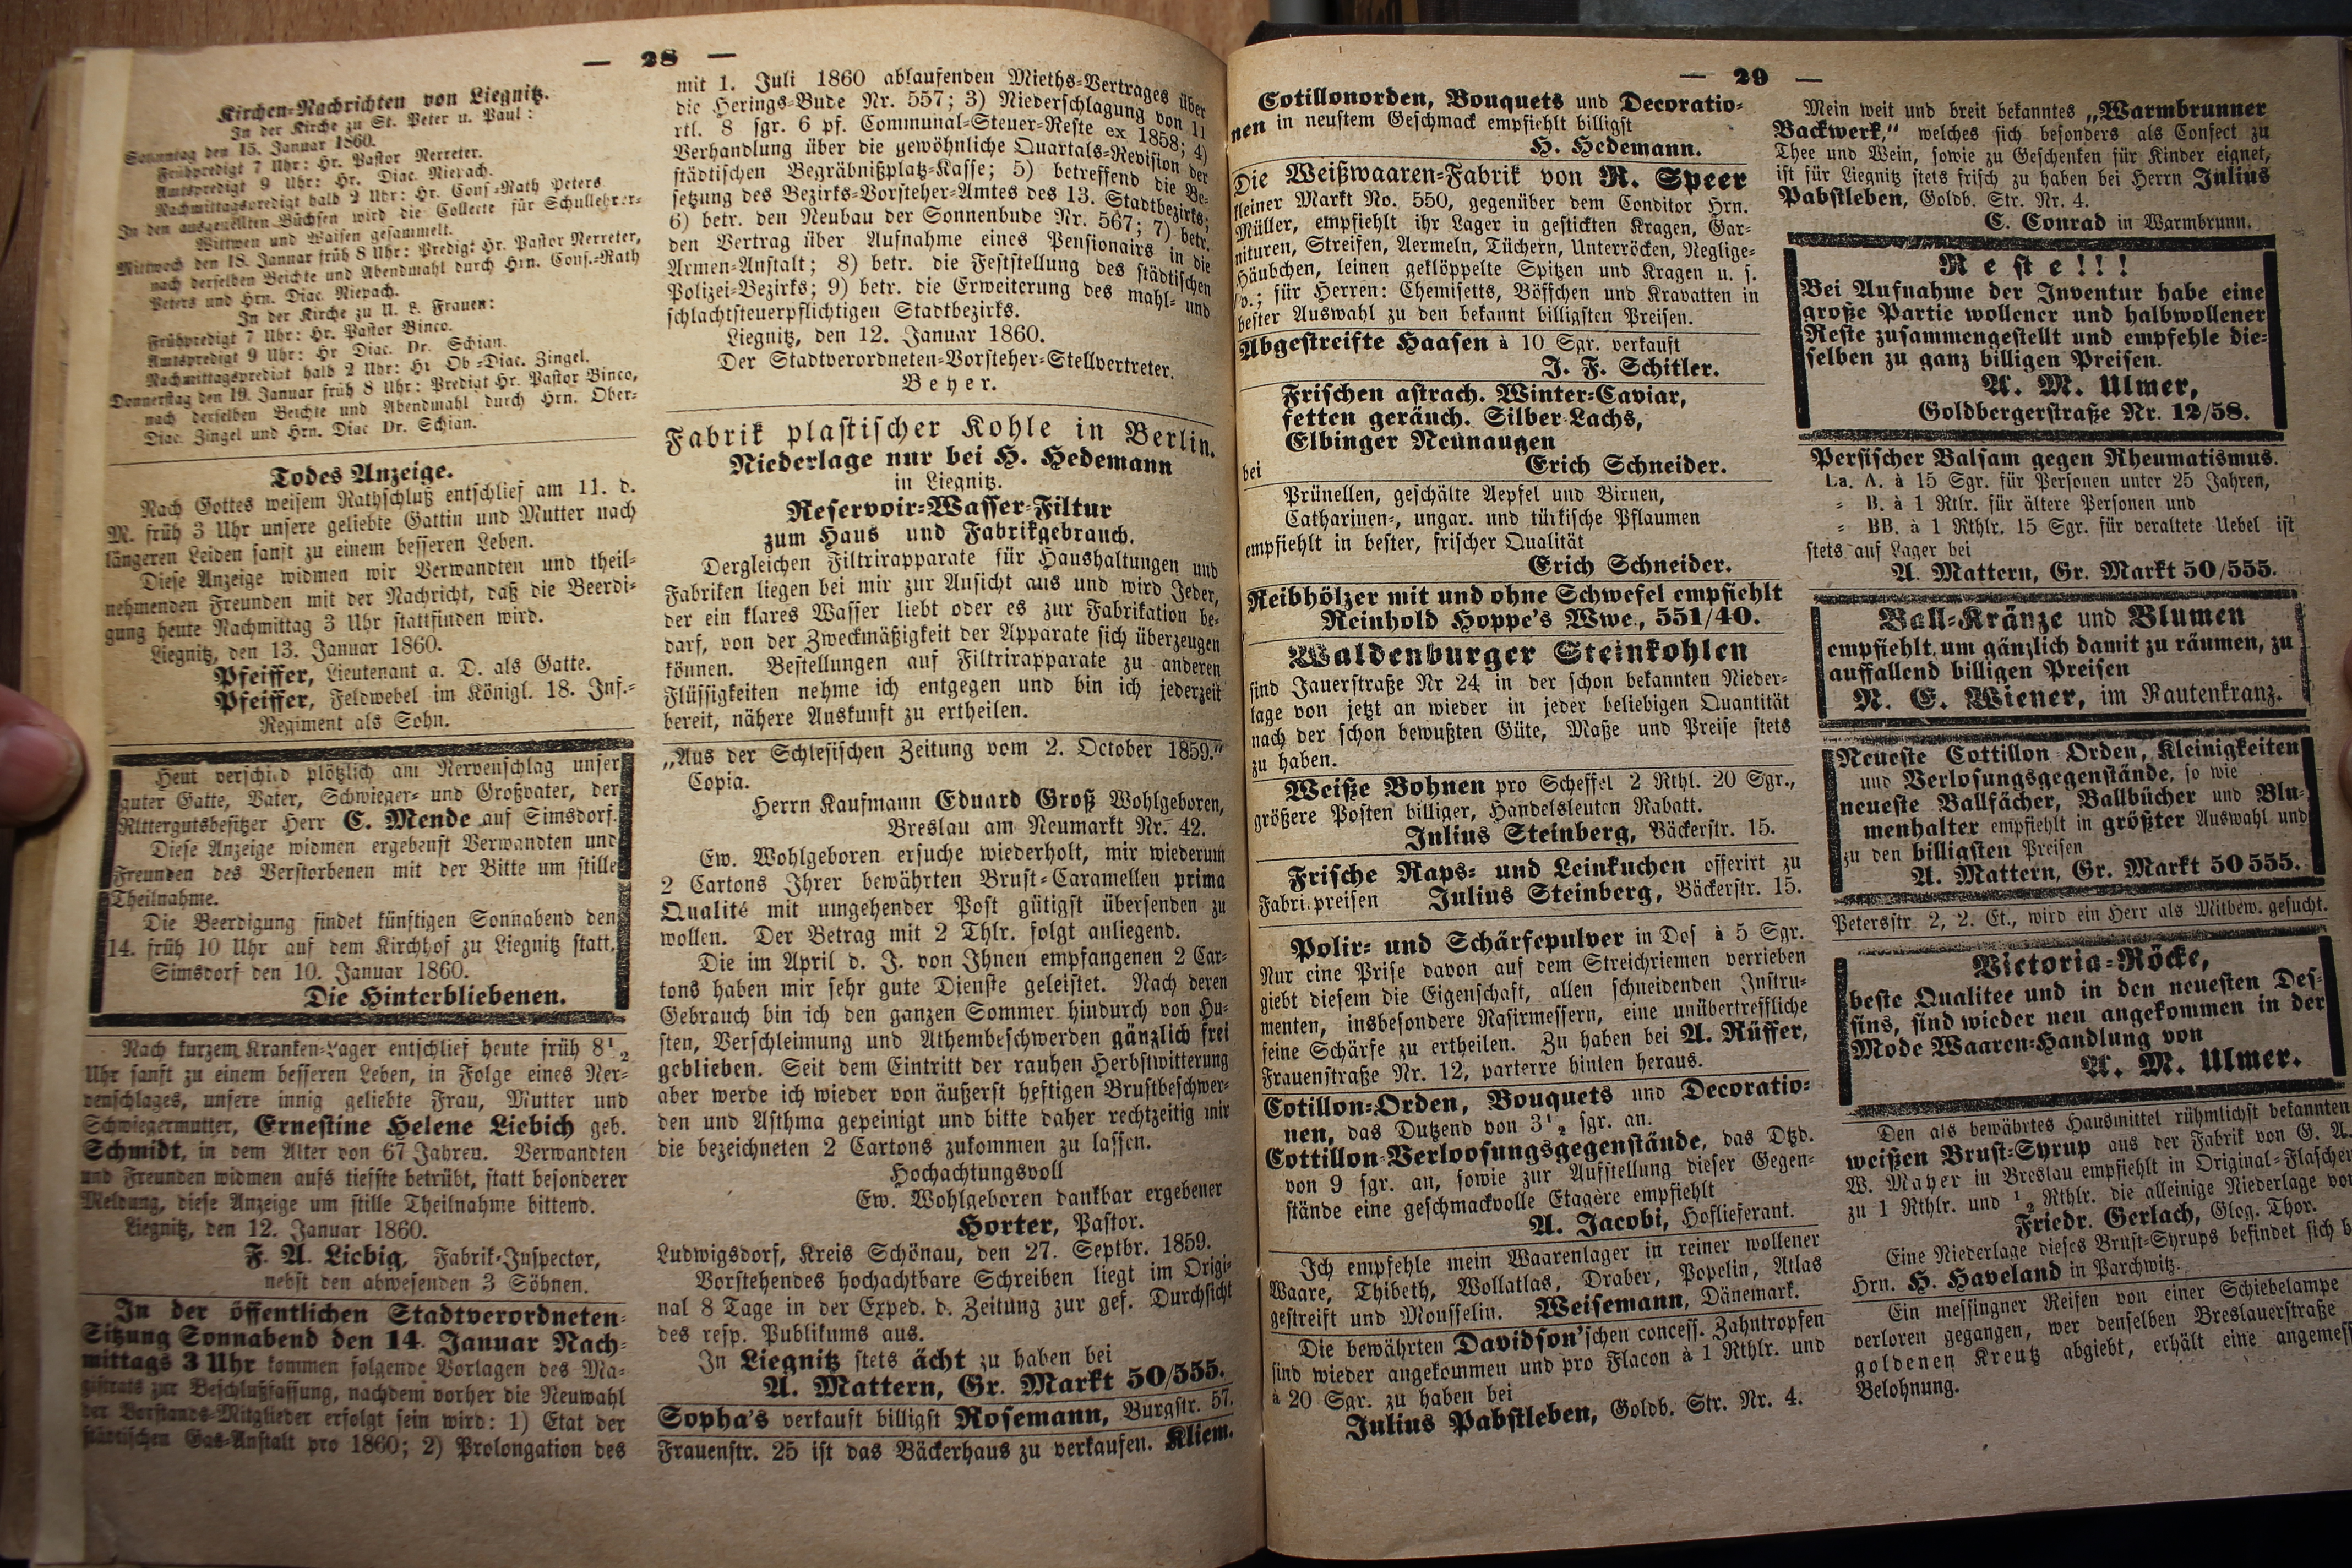 — 28 —
Kirchen-Nachrichten von Liegnitz.
In der Kirche zu St. Peter u. Paul:
Sonntag den 15. Januar 1860.
Frühpredigt 7 Uhr: Hr. Pastor Nerreter.
Amtspredigt 9 Uhr: Hr. Diac. Niepach.
Nachmittagspredigt halb 2 Uhr: Hr. Cons.-Rath Peters.
In den ausgestellten Büchsen wird die Collecte für Schullehrer-
Wittwen und Waisen gesammelt.
Mittwoch den 18. Januar früh 8 Uhr: Predigt Hr. Pastor Nerreter,
nach derselben Beichte und Abendmahl durch Hrn. Cons.-Rath
Peters und Hrn. Diac. Niepach.
In der Kirche zu U. L. Frauen:
Frühpredigt 7 Uhr: Hr. Pastor Binco.
Amtspredigt 9 Uhr: Hr Diac. Dr. Schian.
Nachmittagspredigt halb 2 Uhr: Hr Ob.-Diac. Zingel.
Donnerstag den 19. Januar früh 8 Uhr: Predigt Hr. Pastor Binco,
nach derselben Beichte und Abendmahl durch Hrn. Ober-
Diac. Zingel und Hrn. Diac Dr. Schian.
Todes Anzeige.
Nach Gottes weisem Rathschluß entschlief am 11. d.
M. früh 3 Uhr unsere geliebte Gattin und Mutter nach
längeren Leiden sanft zu einem besseren Leben.
Diese Anzeige widmen wir Verwandten und theil-
nehmenden Freunden mit der Nachricht, daß die Beerdi-
gung heute Nachmittag 3 Uhr stattfinden wird.
Liegnitz, den 13. Januar 1860.
Pfeiffer, Lieutenant a. D. als Gatte.
Pfeiffer, Feldwebel im Königl. 18. Inf.-
Regiment als Sohn.
Heut verschied plötzlich am Nervenschlag unser
guter Gatte, Vater, Schwieger- und Großvater, der
Rittergutsbesitzer Herr C. Mende auf Simsdorf.
Diese Anzeige widmen ergebenst Verwandten und
Freunden des Verstorbenen mit der Bitte um stille
Theilnahme.
Die Beerdigung findet künftigen Sonnabend den
14. früh 10 Uhr auf dem Kirchhof zu Liegnitz statt.
Simsdorf den 10. Januar 1860.
Die Hinterbliebenen.
Nach kurzem Kranken-Lager entschlief heute früh 8½
Uhr sanft zu einem besseren Leben, in Folge eines Ner-
venschlages, unsere innig geliebte Frau, Mutter und
Schwiegermutter, Ernestine Helene Liebich geb.
Schmidt, in dem Alter von 67 Jahren. Verwandten
und Freunden widmen aufs tiefste betrübt, statt besonderer
Meldung, diese Anzeige um stille Theilnahme bittend.
Liegnitz, den 12. Januar 1860.
F. A. Liebig, Fabrik-Inspector,
nebst den abwesenden 3 Söhnen.
In der öffentlichen Stadtverordneten-
Sitzung Sonnabend den 14. Januar Nach-
mittags 3 Uhr kommen folgende Vorlagen des Ma-
gistrats zur Beschlußfassung, nachdem vorher die Neuwahl
der Vorstands-Mitglieder erfolgt sein wird: 1) Etat der
städtischen Gas-Anstalt pro 1860; 2) Prolongation des
mit 1. Juli 1860 ablaufenden Mieths-Vertrages über
die Herings-Bude Nr. 557; 3) Niederschlagung von 11
rtl. 8 sgr. 6 pf. Communal-Steuer-Reste ex 1858; 4)
Verhandlung über die gewöhnliche Quartals-Revision der
städtischen Begräbnißplatz-Kasse; 5) betreffend die Be-
setzung des Bezirks-Vorsteher-Amtes des 13. Stadtbezirks;
6) betr. den Neubau der Sonnenbude Nr. 567; 7) betr.
den Vertrag über Aufnahme eines Pensionairs in die
Armen-Anstalt; 8) betr. die Feststellung des städtischen
Polizei-Bezirks; 9) betr. die Erweiterung des mahl- und
schlachtsteuerpflichtigen Stadtbezirks.
Liegnitz, den 12. Januar 1860.
Der Stadtverordneten-Vorsteher-Stellvertreter.
Beyer.
Fabrik plastischer Kohle in Berlin.
Niederlage nur bei H. Hedemann
in Liegnitz.
Reservoir-Wasser-Filtur
zum Haus und Fabrikgebrauch.
Dergleichen Filtrirapparate für Haushaltungen und
Fabriken liegen bei mir zur Ansicht aus und wird Jeder,
der ein klares Wasser liebt oder es zur Fabrikation be-
darf, von der Zweckmäßigkeit der Apparate sich überzeugen
können. Bestellungen auf Filtrirapparate zu anderen
Flüssigkeiten nehme ich entgegen und bin ich jederzeit
bereit, nähere Auskunft zu ertheilen.
„Aus der Schlesischen Zeitung vom 2. October 1859.“
Copia.
Herrn Kaufmann Eduard Groß Wohlgeboren,
Breslau am Neumarkt Nr. 42.
Ew. Wohlgeboren ersuche wiederholt, mir wiederum
2 Cartons Ihrer bewährten Brust-Caramellen prima
Qualité mit umgehender Post gütigst übersenden zu
wollen. Der Betrag mit 2 Thlr. folgt anliegend.
Die im April d. J. von Ihnen empfangenen 2 Car-
tons haben mir sehr gute Dienste geleistet. Nach deren
Gebrauch bin ich den ganzen Sommer hindurch von Hu-
sten, Verschleimung und Athembeschwerden gänzlich frei
geblieben. Seit dem Eintritt der rauhen Herbstwitterung
aber werde ich wieder von äußerst heftigen Brustbeschwer-
den und Asthma gepeinigt und bitte daher rechtzeitig mir
die bezeichneten 2 Cartons zukommen zu lassen.
Hochachtungsvoll
Ew. Wohlgeboren dankbar ergebener
Horter, Pastor.
Ludwigsdorf, Kreis Schönau, den 27. Septbr. 1859.
Vorstehendes hochachtbare Schreiben liegt im Origi-
nal 8 Tage in der Exped. d. Zeitung zur gef. Durchsicht
des resp. Publikums aus.
In Liegnitz stets ächt zu haben bei
A. Mattern, Gr. Markt 50/555.
Sopha's verkauft billigst Rosemann, Burgstr. 57.
Frauenstr. 25 ist das Bäckerhaus zu verkaufen. Kliem.
— 29 —
Cotillonorden, Bouquets und Decoratio-
nen in neustem Geschmack empfiehlt billigst
H. Hedemann.
Die Weißwaaren-Fabrik von R. Speer
kleiner Markt No. 550, gegenüber dem Conditor Hrn.
Müller, empfiehlt ihr Lager in gestickten Kragen, Gar-
nituren, Streifen, Aermeln, Tüchern, Unterröcken, Neglige-
Häubchen, leinen geklöppelte Spitzen und Kragen u. s.
w.; für Herren: Chemisetts, Böffchen und Kravatten in
bester Auswahl zu den bekannt billigsten Preisen.
Abgestreifte Haasen à 10 Sgr. verkauft
J. F. Schitler.
Frischen astrach. Winter-Caviar,
fetten geräuch. Silber-Lachs,
Elbinger Neunaugen
bei Erich Schneider.
Prünellen, geschälte Aepfel und Birnen,
Catharinen-, ungar. und türkische Pflaumen
empfiehlt in bester, frischer Qualität
Erich Schneider.
Reibhölzer mit und ohne Schwefel empfiehlt
Reinhold Hoppe's Wwe., 551/40.
Waldenburger Steinkohlen
sind Jauerstraße Nr 24 in der schon bekannten Nieder-
lage von jetzt an wieder in jeder beliebigen Quantität
nach der schon bewußten Güte, Maße und Preise stets
zu haben.
Weiße Bohnen pro Scheffel 2 Rthl. 20 Sgr.,
größere Posten billiger, Handelsleuten Rabatt.
Julius Steinberg, Bäckerstr. 15.
Frische Raps- und Leinkuchen offerirt zu
Fabrikpreisen Julius Steinberg, Bäckerstr. 15.
Polir- und Schärfepulver in Dos à 5 Sgr.
Nur eine Prise davon auf dem Streichriemen verrieben
giebt diesem die Eigenschaft, allen schneidenden Instru-
menten, insbesondere Rasirmessern, eine unübertreffliche
feine Schärfe zu ertheilen. Zu haben bei A. Rüffer,
Frauenstraße Nr. 12, parterre hinten heraus.
Cotillon-Orden, Bouquets und Decoratio-
nen, das Dutzend von 3½ sgr. an.
Cottillon-Verloosungsgegenstände, das Dtzd.
von 9 sgr. an, sowie zur Aufstellung dieser Gegen-
stände eine geschmackvolle Etagère empfiehlt
A. Jacobi, Hoflieferant.
Ich empfehle mein Waarenlager in reiner wollener
Waare, Thibeth, Wollatlas, Draber, Popelin, Atlas
gestreift und Mousselin. Weisemann, Dänemark.
Die bewährten Davidson'schen concess. Zahntropfen
sind wieder angekommen und pro Flacon à 1 Rthlr. und
à 20 Sgr. zu haben bei
Julius Pabstleben, Goldb. Str. Nr. 4.
Mein weit und breit bekanntes „Warmbrunner
Backwerk,“ welches sich besonders als Confect zu
Thee und Wein, sowie zu Geschenken für Kinder eignet,
ist für Liegnitz stets frisch zu haben bei Herrn Julius
Pabstleben, Goldb. Str. Nr. 4.
C. Conrad in Warmbrunn.
Reste!!!
Bei Aufnahme der Inventur habe eine
große Partie wollener und halbwollener
Reste zusammengestellt und empfehle die-
selben zu ganz billigen Preisen.
A. M. Ulmer,
Goldbergerstraße Nr. 12/58.
Persischer Balsam gegen Rheumatismus.
La. A. à 15 Sgr. für Personen unter 25 Jahren,
= B. à 1 Rtlr. für ältere Personen und
= BB. à 1 Rthlr. 15 Sgr. für veraltete Uebel ist
stets auf Lager bei
A. Mattern, Gr. Markt 50/555.
Ball-Kränze und Blumen
empfiehlt, um gänzlich damit zu räumen, zu
auffallend billigen Preisen
N. E. Wiener, im Rautenkranz.
Neueste Cottillon Orden, Kleinigkeiten
und Verlosungsgegenstände, so wie
neueste Ballfächer, Ballbücher und Blu-
menhalter empfiehlt in größter Auswahl und
zu den billigsten Preisen
A. Mattern, Gr. Markt 50 555.
Petersstr 2, 2. Et., wird ein Herr als Mitbew. gesucht.
Victoria-Röcke,
beste Qualitee und in den neuesten Des-
sins, sind wieder neu angekommen in der
Mode Waaren-Handlung von
A. M. Ulmer.
Den als bewährtes Hausmittel rühmlichst bekannten
weißen Brust-Syrup aus der Fabrik von G. A.
W. Mayer in Breslau empfiehlt in Original-Flaschen
zu 1 Rthlr. und ½ Rthlr. die alleinige Niederlage von
Friedr. Gerlach, Glog. Thor.
Eine Niederlage dieses Brust-Syrups befindet sich b
Hrn. H. Haveland in Parchwitz.
Ein messingner Reifen von einer Schiebelampe
verloren gegangen, wer denselben Breslauerstraße
goldenen Kreutz abgiebt, erhält eine angemess
Belohnung.